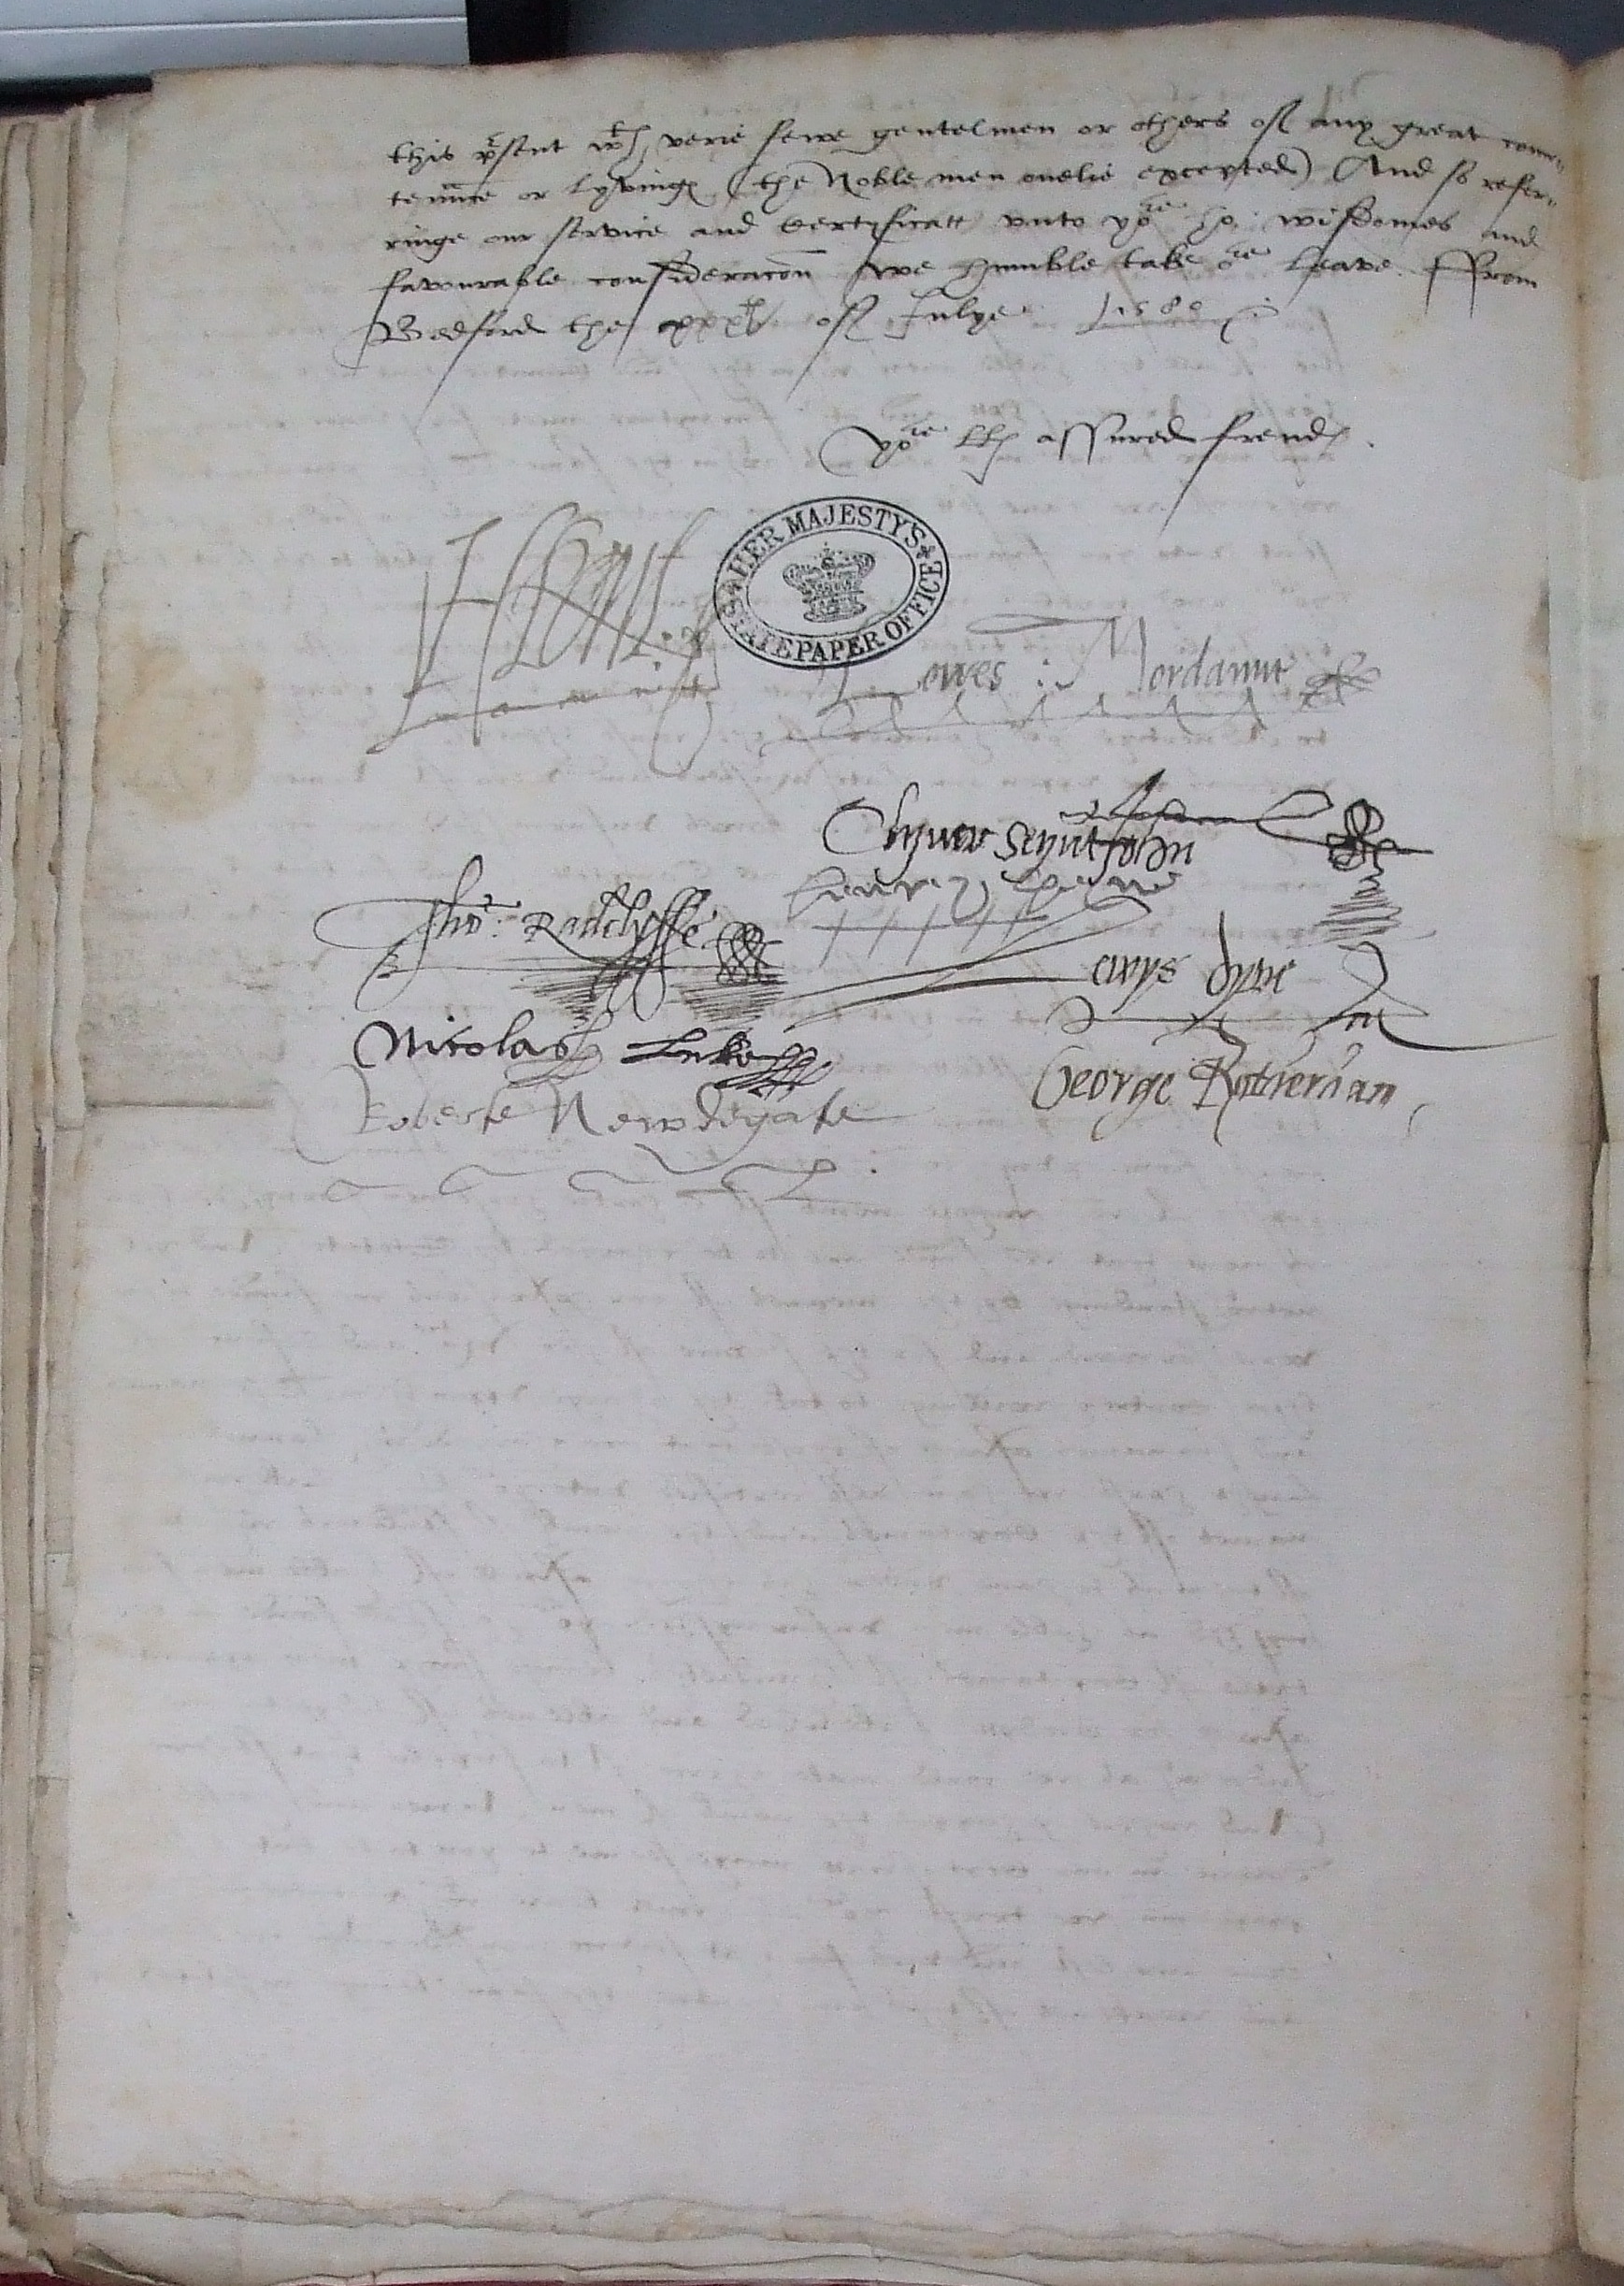 this p̄sent wth verie fewe gentelmen or others of any great coun-
ten̄nce or lyvinge (the Noble men onelie excepted) And so refer-
ringe our service and certyficatt vnto yore ho: wisdomes and
favourable consideracōn we humble take ore leave. ffrom
Bedford the xxxth of Julye 1580
yore llps assured frends.
HER MAJESTY'S
STATE PAPER OFFICE
H Kent
Lowes : Mordaunt
Olyver Seynt John
Tho: Radclyffe
Henry Cheyne
Lewys dyve
Nicolas Luke
George Rotheram
Roberte Newdegate